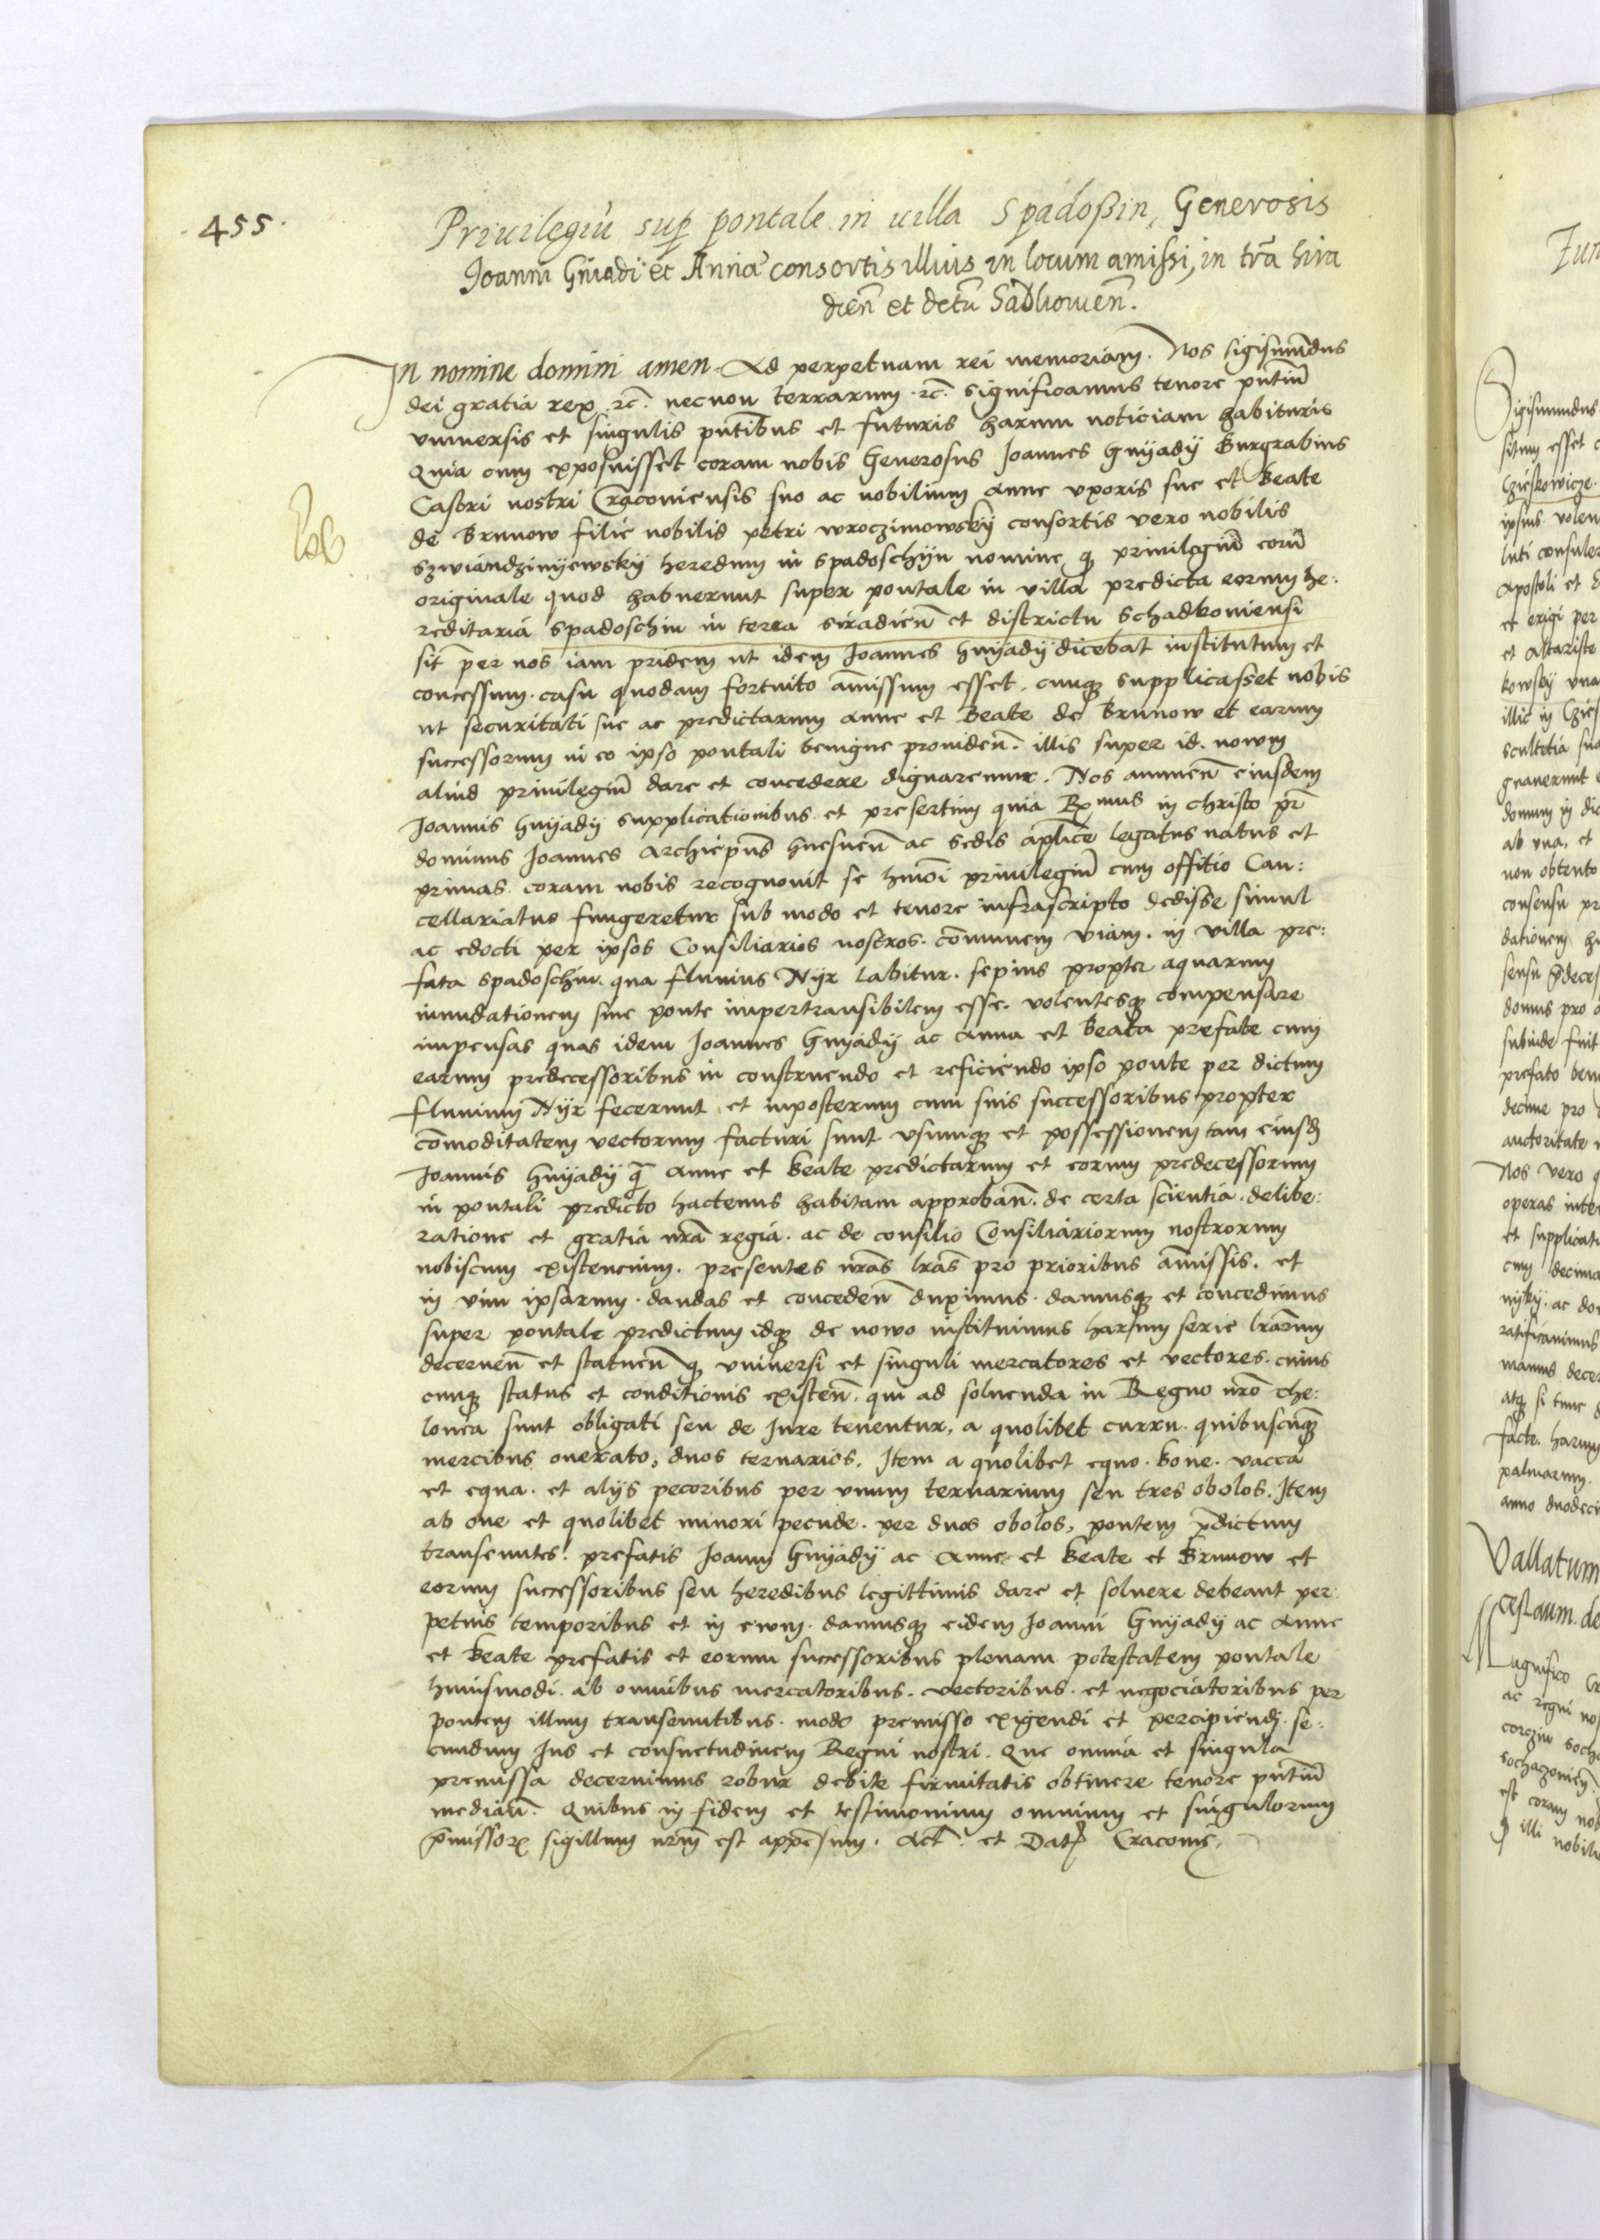 455.
Priuilegiū sup pontale in uilla Spadoßin, Generosis
Joanni Gnÿadi et Annae consortis illius in locum amissi, in tra Sira
dieñ et detū Sadkouieñ.
In nomine domini amen. Ad perpetuam rei memoriam. Nos sigismundus
dei gratia rex ꝛc̄. necnon terrarum ꝛc̄. significamus tenore pn̄tiū
vniuersis et singulis pn̄tibus et futuris harum noticiam habituris
Quia cum exposuisset coram nobis Generosus Joannes Gnÿadÿ Burgrabius
Castri nostri Cracouiensis suo ac nobilium Anne vxoris sue et Beate
de Brunow filie nobilis petri wroczimowskÿ consortis vero nobilis
szwiandzinÿewskÿ heredum in spadoschÿn nomine ꝙ priuilegiū eorū
originale quod habuerunt super pontale in villa predicta eorum he:
reditaria spadoschin in terra siradieñ et districtu schadkouiensi
sit per nos iam pridem ut idem Joannes Gnÿadÿ dicebat institutum et
concessum. casu quodam fortuito am̄issum esset. cumqꝫ supplicasset nobis
ut securitati sue ac predictarum Anne et Beate de Brunow et earum
successorum in eo ipso pontali benigne prouideñ. illis super id. nowm
aliud priuilegiū dare et concedere dignaremur. Nos annueñ eiusdem
Joannis Gnÿadÿ supplicationibus et presertim quia Rx̄mus in christo pr̄
dominus Joannes Archiepūs Gnesneñ ac sedis ap̄lice legatus natus et
primas. coram nobis recognouit se hmōi priuilegiū cum offitio Can:
cellariatus fungeretur sub modo et tenore infrascripto dedisse simul
ac edocti per ipsos Consiliarios nostros. com̄unem viam. in villa pre:
fata spadoschin. qua fluuius Nÿr Labitur. sepius propter aquarum
inundationem sine ponte impertransibilem esse. volentesqꝫ compensare
impensas quas idem Joannes Gnÿadÿ ac Anna et Beata prefate cum
earum predecessoribus in construendo et reficiendo ipso ponte per dictum
fluuium Nÿr fecerunt et inposterum cum suis successoribus propter
com̄oditatem vectorum facturi sunt vsumqꝫ et possessionem tam eiusd̄
Joannis Gnÿadÿ q̄ Anne et Beate predictarum et eorum predecessorum
in pontali predicto hactenus habitam approbañ. de certa scientia. delibe:
ratione et gratia nr̄a regia. ac de consilio Consiliariorum nostrorum
nobiscum existencium. presentes nr̄as lr̄as pro prioribus am̄issis. et
in vim ipsarum. dandas et concedeñ duximus. damusqꝫ et concedimus
super pontale predictum idqꝫ de nowo instituimus harum serie lr̄arum
decerneñ et statueñ ꝙ vniuersi et singuli mercatores et vectores. cuius
cumqꝫ status et conditionis existeñ. qui ad soluenda in Regno nr̄o the:
lonea sunt obligati seu de Jure tenentur, a quolibet curru. quibuscūqꝫ
mercibus onerato, duos ternarios. Item a quolibet equo. boue. vacca
et equa. et alÿs pecoribus per vnum ternarium seu tres obolos. Item
ab oue et quolibet minori pecude. per duos obolos, pontem p̄dictum
transeuntes. prefatis Joanni Gnÿadÿ ac Anne et Beate et Brunow et
eorum successoribus seu heredibus legittimis dare et soluere debeant per:
petuis temporibus et in ewm. damusqꝫ eidem Joanni Gnÿadÿ ac Anne
et Beate prefatis et eorum successoribus plenam potestatem pontale
huiusmodi. ab omnibus mercatoribus. vectoribus. et negociatoribus per
pontem illum transeuntibus. modo premisso exigendi et percipiendi. se:
cundum Jus et consuetudinem Regni nostri. Que omnia et singula
premissa decernimus robur debite firmitatis obtinere tenore pn̄tiū
mediañ. Quibus in fidem et testimonium omnium et singulorum
p̄missoꝝ sigillum nr̄m est appensum. Act̄. et Datꝭ Cracouie.